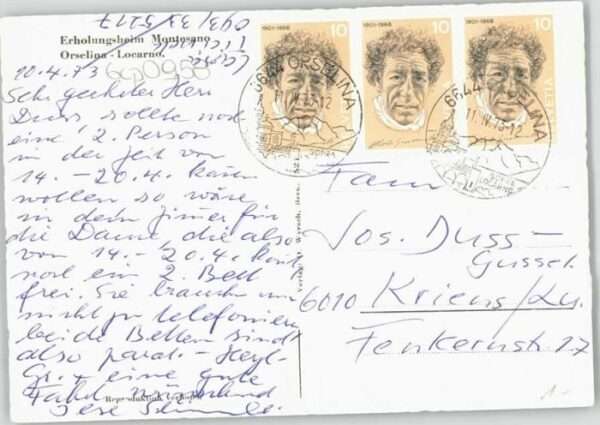 Erholungsheim Montesano
Orselina - Locarno.
093/33 5217
10.4.73
Sehr geehrter Herr
Duss sollte noch
eine 2. Person
in der Zeit von
14. - 20.4. kommen
wollen so wäre
in dem Zimer für
die Dame, die also
von 14. - 20.4. kommt
noch ein 2. Bett
frei. Sie brauchen
nicht zu telefonieren
beide Betten sind
also parat. - Herzl.
Gr. + eine gute
Fahrt
Reproduktion verboten
1901-1966 10
1901-1966 10
1901-1966 10
HELVETIA
6644 ORSELINA
11.IV.73-12
6644 ORSELINA
11.IV.73-12
Fam
Jos. Duss-
Gussel.
6010 Kriens/Lu.
Fenkernstr. 27